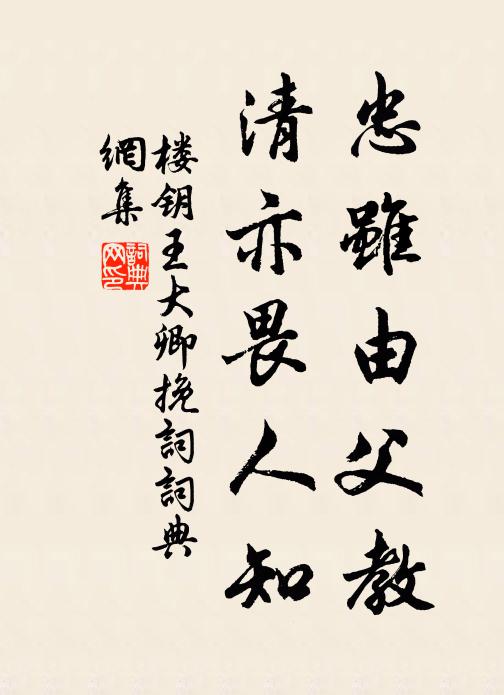 忠雖由父教
清亦畏人知
楼钥王大卿挽詞詞典
網集
詞典
网印